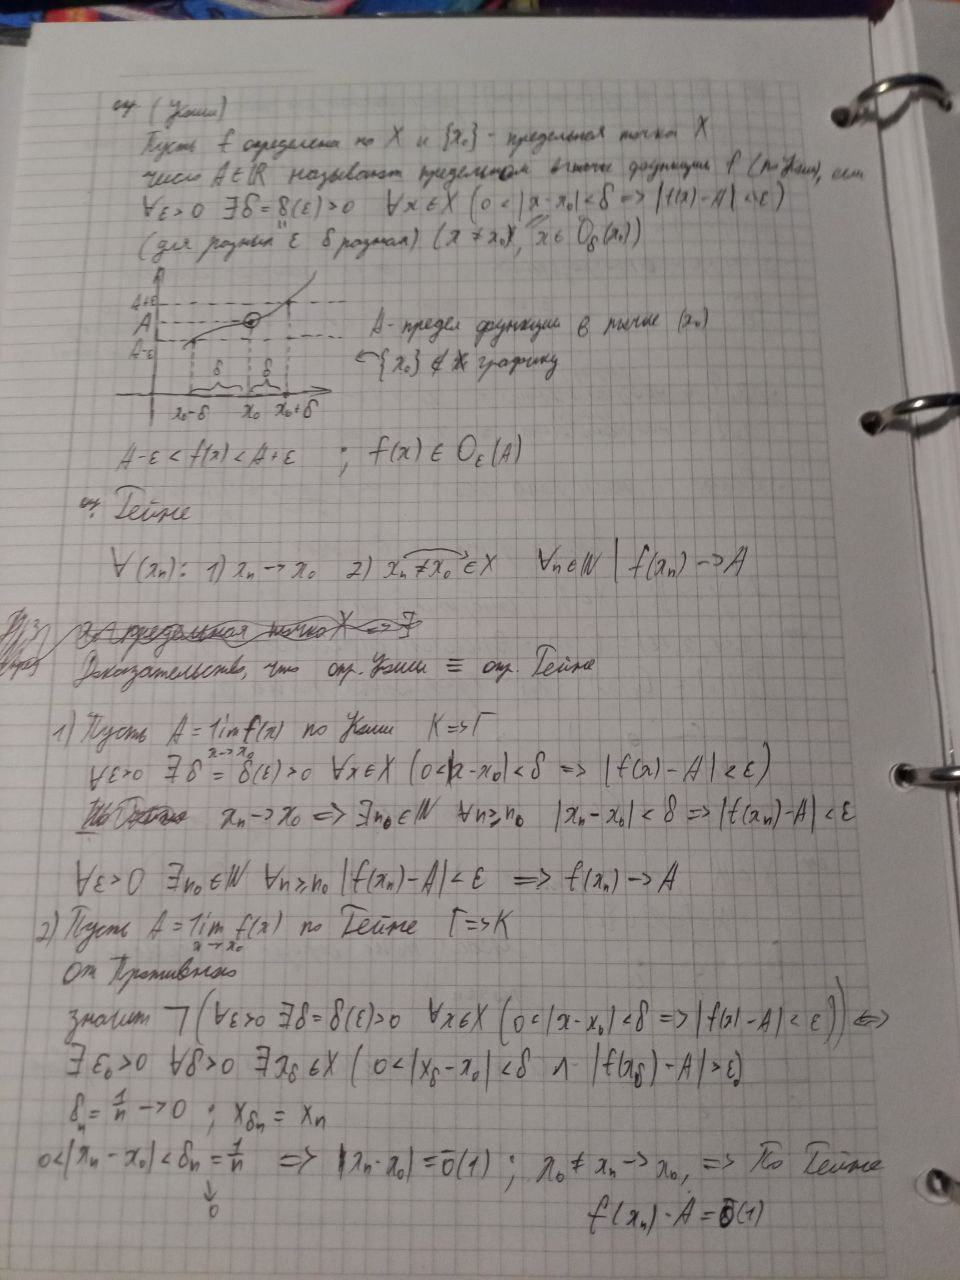 опр (Коши)
Пусть f определена на X и {x₀} - предельная точка X
число A∈ℝ называют пределом в точке функции f (по Коши), если
∀ε>0 ∃δ=δ(ε)>0 ∀x∈X (0<|x-x₀|<δ => |f(x)-A|<ε)
(для разных ε δ разная) (x≠x₀, x∈O_δ(x₀))
A+ε
A
A-ε
δ δ
x₀-δ x₀ x₀+δ
A - предел функции в точке (x₀)
{x₀} ∉ графику
A-ε < f(x) < A+ε ; f(x) ∈ O_ε(A)
опр. Гейне
∀(xₙ): 1) xₙ → x₀ 2) xₙ ≠ x₀ ∈X ∀n∈ℕ | f(xₙ) → A
предельная точка X
Доказательство, что опр. Коши ≡ опр. Гейне
1) Пусть A = lim f(x) по Коши К=>Г
x→x₀
∀ε>0 ∃δ=δ(ε)>0 ∀x∈X (0<|x-x₀|<δ => |f(x)-A|<ε)
xₙ → x₀ => ∃n₀∈ℕ ∀n≥n₀ |xₙ-x₀|<δ => |f(xₙ)-A|<ε
∀ε>0 ∃n₀∈ℕ ∀n≥n₀ |f(xₙ)-A|<ε => f(xₙ) → A
2) Пусть A = lim f(x) по Гейне Г=>К
x→x₀
От Противного
значит ¬(∀ε>0 ∃δ=δ(ε)>0 ∀x∈X (0<|x-x₀|<δ => |f(x)-A|<ε)) <=>
∃ε₀>0 ∀δ>0 ∃x_δ∈X (0<|x_δ-x₀|<δ ∧ |f(x_δ)-A|>ε)
δₙ = 1/n → 0 ; x_δₙ = xₙ
0<|xₙ-x₀|<δₙ = 1/n => |xₙ-x₀| = ō(1) ; x₀ ≠ xₙ → x₀, => По Гейне
↓
0
f(xₙ) - A = ō(1)